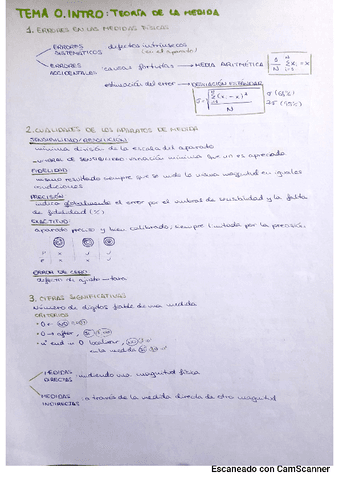 TEMA 0. INTRO: TEORÍA DE LA MEDIDA
1. ERRORES EN LAS MEDIDAS FÍSICAS
ERRORES SISTEMÁTICOS defectos intrínsecos (en el aparato)
ERRORES ACCIDENTALES causas fortuitas → MEDIA ARITMÉTICA
estimación del error → DESVIACIÓN ESTÁNDAR
2. CUALIDADES DE LOS APARATOS DE MEDIDA
SENSIBILIDAD/RESOLUCIÓN
mínima división de la escala del aparato
UMBRAL DE SENSIBILIDAD: variación mínima que no es apreciada
FIDELIDAD
mismo resultado siempre que se mida la misma magnitud en iguales
condiciones
PRECISIÓN
indica globalmente el error por el umbral de sensibilidad y la falta
de fidelidad (%)
EXACTITUD
aparato preciso y bien calibrado, siempre limitada por la precisión
ERROR DE CERO:
defecto de ajuste → tara
3. CIFRAS SIGNIFICATIVAS
Número de dígitos fiable de una medida
CRITERIOS
MEDIDAS DIRECTAS: midiendo una magnitud física
MEDIDAS INDIRECTAS a través de la medida directa de otra magnitud
Escaneado con CamScanner